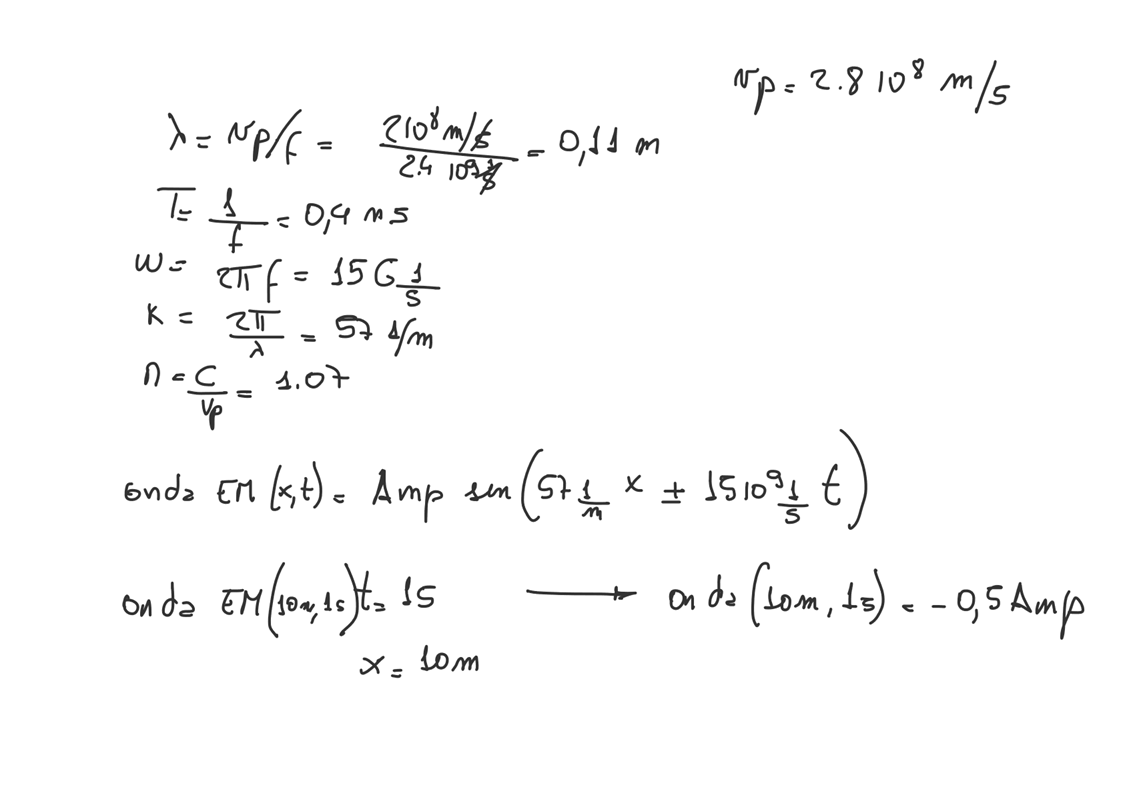 vp = 2.8 10⁸ m/s
λ = vp/f = 2 10⁸ m/s / 2.4 10⁹ 1/s = 0,11 m
T = 1/f = 0,4 ns
w = 2π f = 15 G 1/s
k = 2π/λ = 57 1/m
n = c/vp = 1.07
onda EM (x,t) = Amp sen (57 1/m x ± 15 10⁹ 1/s t)
onda EM (10m, 1s) t = 1s → onda (10m, 1s) = - 0,5 Amp
x = 10m